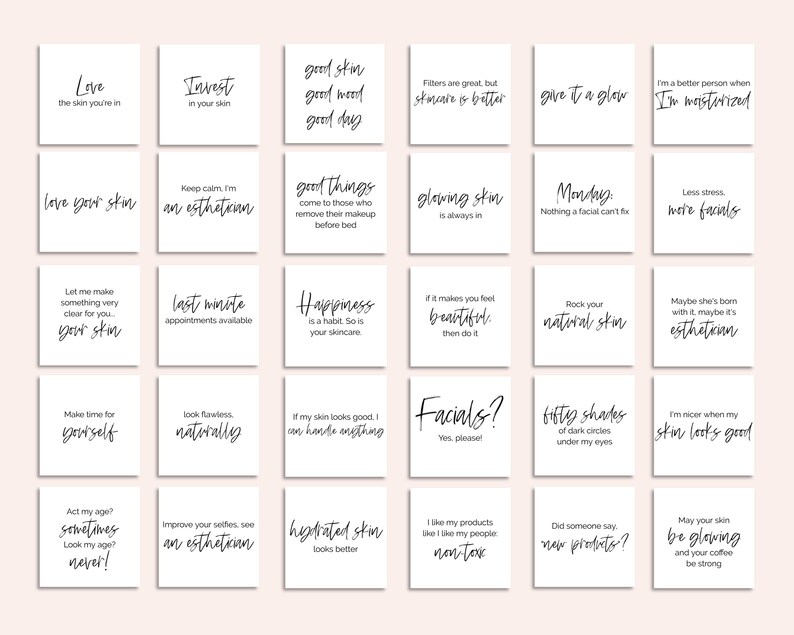 Love
the skin you're in
Invest
in your skin
good skin
good mood
good day
Filters are great, but
skincare is better
give it a glow
I'm a better person when
I'm moisturized
love your skin
Keep calm, I'm
an esthetician
good things
come to those who
remove their makeup
before bed
glowing skin
is always in
Monday:
Nothing a facial can't fix
Less stress,
more facials
Let me make
something very
clear for you...
your skin
last minute
appointments available
Happiness
is a habit. So is
your skincare.
if it makes you feel
beautiful,
then do it
Rock your
natural skin
Maybe she's born
with it, maybe it's
esthetician
Make time for
yourself
look flawless,
naturally
If my skin looks good, I
can handle anything
Facials?
Yes, please!
fifty shades
of dark circles
under my eyes
I'm nicer when my
skin looks good
Act my age?
sometimes
Look my age?
never!
Improve your selfies, see
an esthetician
hydrated skin
looks better
I like my products
like I like my people:
non-toxic
Did someone say,
new products?
May your skin
be glowing
and your coffee
be strong